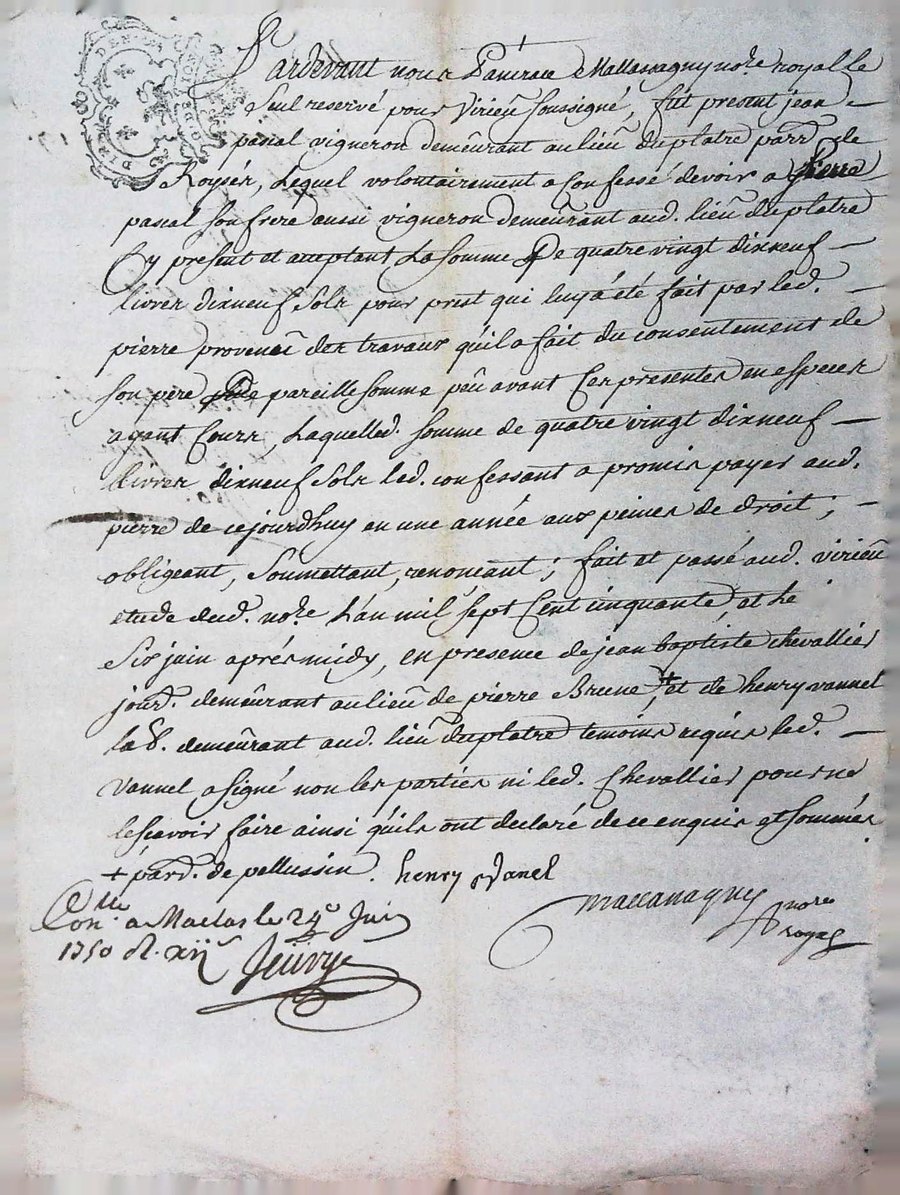 Pardevant nous Pancrace Mallassagny no.re royal le
seul reservé pour Virieu soussigné, fût present jean
pascal vigneron demeûrant au lieu du platre parr. de
Roysés, Lequel volontairement a Confessé devoir a pierre
pascal son frere aussi vigneron demeûrant aud. lieu du platre
Cy present et acceptant La somme De quatre vingt dixneuf
livres dixneuf sols pour prest qui luy a été fait par led.
pierre provenu des travaux qu'il a fait du consentement de
son père De pareille somme peû avant Ces presentes en especes
ayant Cours, Laquelled. somme de quatre vingt dixneuf
livres dixneuf sols led. confessant a promis payer aud.
pierre de cejourdhuy en une année aux peines de droit ;
obligeant, soumettant, renoncant ; fait et passé aud. virieu
etude dud. no.re L'an mil sept Cent cinquante, et Le
Six juin aprés midy, en presence de jean baptiste chevallier
jour.d demeûrant au lieu de pierre Brune +, et de henry vannel
lab. demeûrant aud. lieu du platre temoins requis led.
Vannel a signé non les parties ni led. Chevallier pour ne
le sçavoir faire ainsi qu'ils ont declaré de ce enquis et sommés.
+ par.d de pellussin. henry Vanel
Con.lle a Maclas le 24e Juin
1750 R. xij s
mallassagny no.re
royal